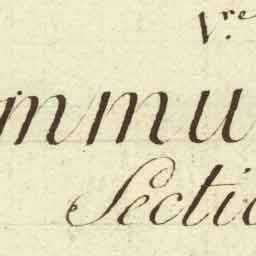 V.re
mmu
Sectio